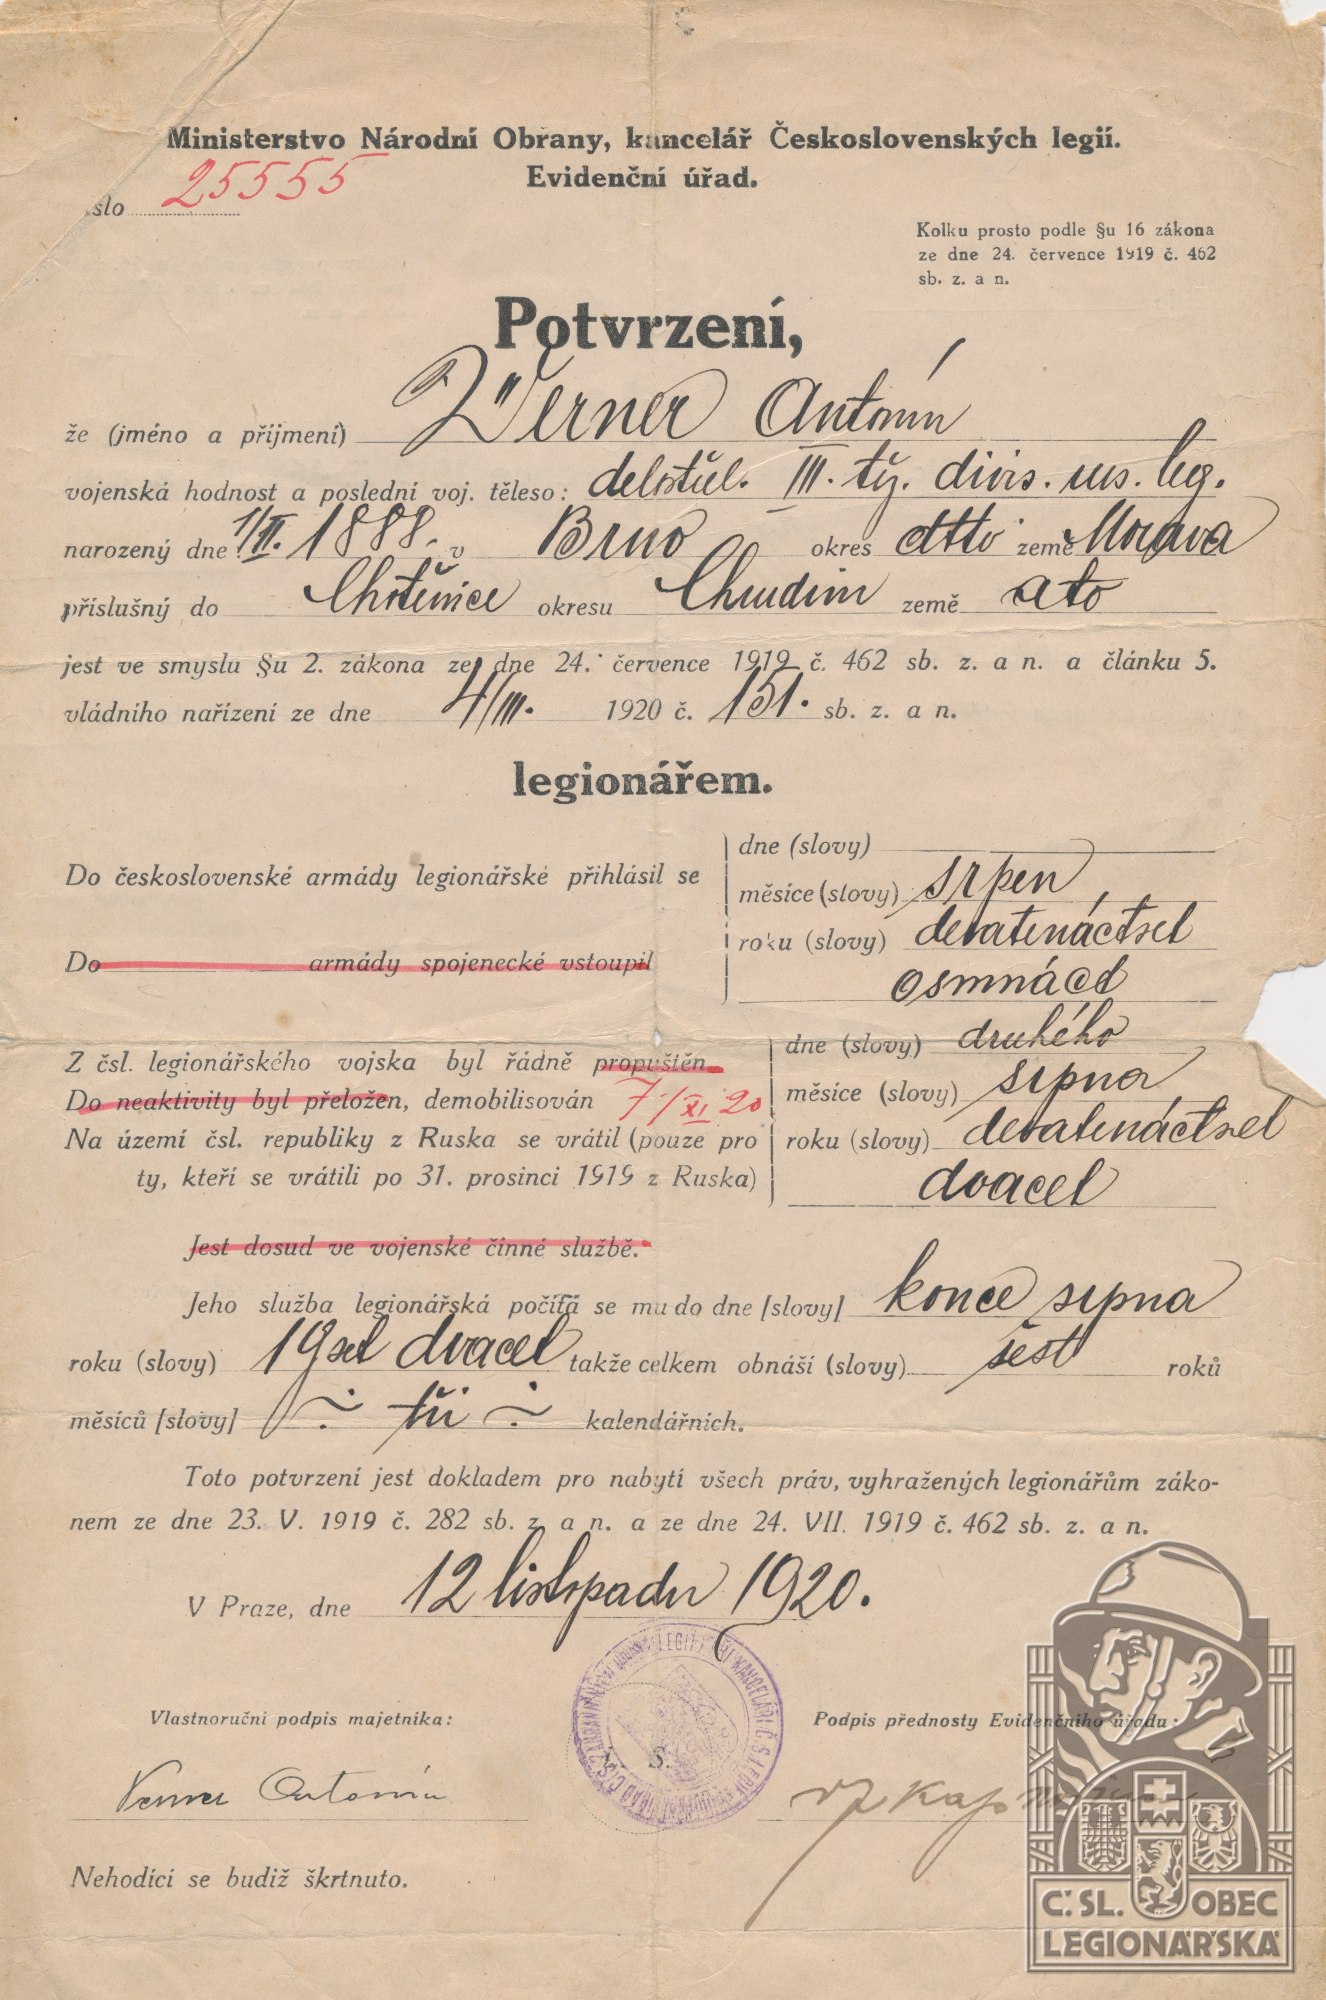 Ministerstvo Národní Obrany, kancelář Československých legií.
Evidenční úřad.
íslo 25555
Kolku prosto podle §u 16 zákona
ze dne 24. července 1919 č. 462
sb. z. a n.
Potvrzení,
že (jméno a příjmení) Werner Antonín
vojenská hodnost a poslední voj. těleso: dělostřel. III. těž. divis. rus. leg.
narozený dne 1/II. 1888. v Brno okres dtto země Morava
příslušný do Chrtěnice okresu Chrudim země dto
jest ve smyslu §u 2. zákona ze dne 24. července 1919 č. 462 sb. z. a n. a článku 5.
vládního nařízení ze dne 4/III. 1920 č. 151. sb. z. a n.
legionářem.
Do československé armády legionářské přihlásil se
dne (slovy)
měsíce (slovy) srpen
roku (slovy) devatenáctset
osmnáct
Do armády spojenecké vstoupil
Z čsl. legionářského vojska byl řádně propuštěn
Do neaktivity byl přeložen, demobilisován 7/XI 20
Na území čsl. republiky z Ruska se vrátil (pouze pro
ty, kteří se vrátili po 31. prosinci 1919 z Ruska)
dne (slovy) druhého
měsíce (slovy) srpna
roku (slovy) devatenáctset
dvacet
Jest dosud ve vojenské činné službě.
Jeho služba legionářská počítá se mu do dne [slovy] konce srpna
roku (slovy) 19set dvacet takže celkem obnáší (slovy) šest roků
měsíců [slovy] tři kalendářních.
Toto potvrzení jest dokladem pro nabytí všech práv, vyhražených legionářům záko-
nem ze dne 23. V. 1919 č. 282 sb. z a n. a ze dne 24. VII. 1919 č. 462 sb. z. a n.
V Praze, dne 12 listopadu 1920.
Vlastnoruční podpis majetníka:
Podpis přednosty Evidenčního úřadu:
S.
Verner Antonín
vz kap
Nehodící se budiž škrtnuto.
Č. SL. OBEC
LEGIONÁŘSKÁ